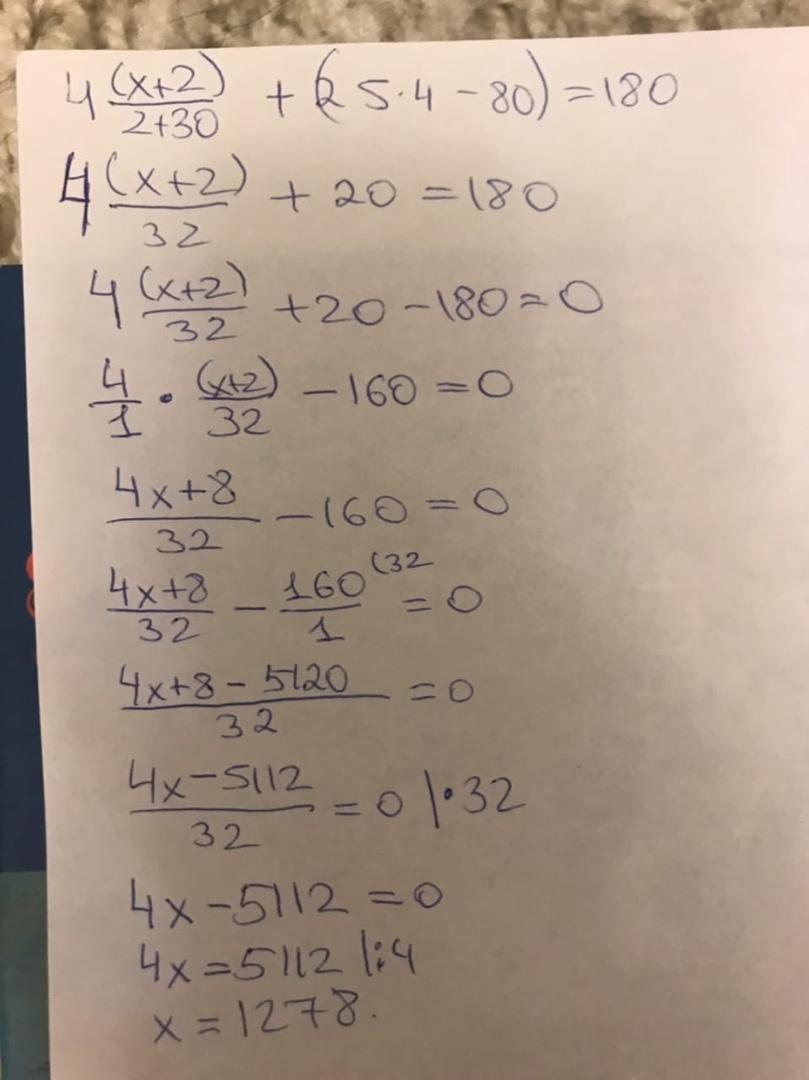 4 (x+2)/(2+30) + (25·4 - 80) = 180
4 (x+2)/32 + 20 = 180
4 (x+2)/32 + 20 - 180 = 0
4/1 · (x+2)/32 - 160 = 0
4x+8/32 - 160 = 0
4x+8/32 - 160/1 (32 = 0
4x+8 - 5120/32 = 0
4x - 5112/32 = 0 |·32
4x - 5112 = 0
4x = 5112 |:4
x = 1278.